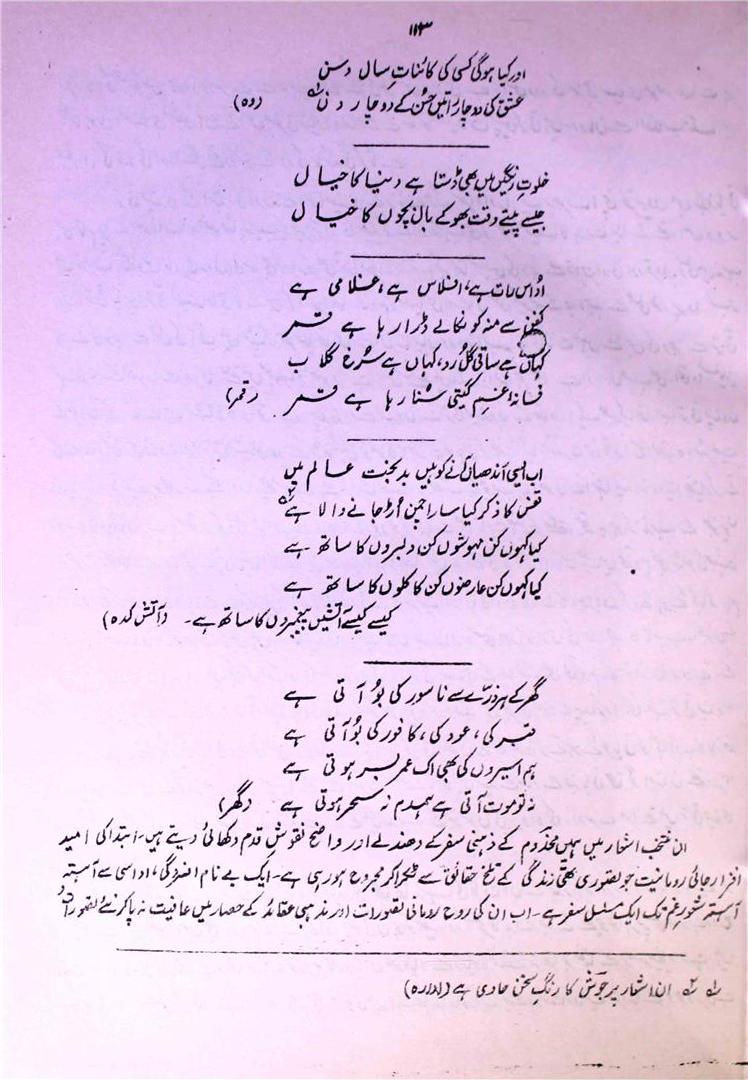 ۱۱۳
اور کیا ہوگی کسی کی کائناتِ سال و سن
عشق کی دوچار راتیں حسن کے دوچار دن لہ (وہ)
خلوتِ رنگیں میں بھی ڈستا ہے دنیا کا خیال
جیسے پیتے وقت بھوکے بال بچوں کا خیال
اداس رات ہے، افلاس ہے، غلامی ہے
کفن سے منہ کو نکالے ڈرا رہا ہے قمر
کہاں ہے ساقیِ گل رو، کہاں ہے سرخ گلاب
فسانۂ غمِ گیتی سنا رہا ہے قمر (قمر)
اب ایسی آندھیاں آنے کو ہیں بدبخت عالم میں
قفس کا ذکر کیا سارا چمن اڑ جانے والا ہے لہ
کیا کہوں کن مہوشوں کن دلبروں کا ساتھ ہے
کیا کہوں کن عارضوں کن کاکلوں کا ساتھ ہے
کیسے کیسے آتشیں پیغمبروں کا ساتھ ہے۔ (آتش کدہ)
گھر کے ہر ذرّے سے ناسور کی بُو آتی ہے
قبر کی، عود کی، کافور کی بُو آتی ہے
ہم اسیروں کی بھی اک عمر بسر ہوتی ہے
نہ تو موت آتی ہے ہمدم نہ سحر ہوتی ہے (گھر)
ان منتخب اشعار میں ہمیں مخدوم کے ذہنی سفر کے دھندلے اور واضح نقوش قدم دکھائی دیتے ہیں۔ ابتدا کی امید
افزا رجائی رومانیت جو تصوری تھی زندگی کے تلخ حقائق سے ٹکرا کر مجروح ہو رہی ہے۔ ایک بے نام افسردگی، اداسی سے آہستہ
آہستہ شعورِ غم تک ایک مسلسل سفر ہے۔ اب ان کی روح رومانی تصورات اور مذہبی عقائد کے حصار میں عافیت نہ پا کر نئے تصورات و
لہ لہ ان اشعار پر جوشؔ کا رنگِ سخن حاوی ہے (ادارہ)